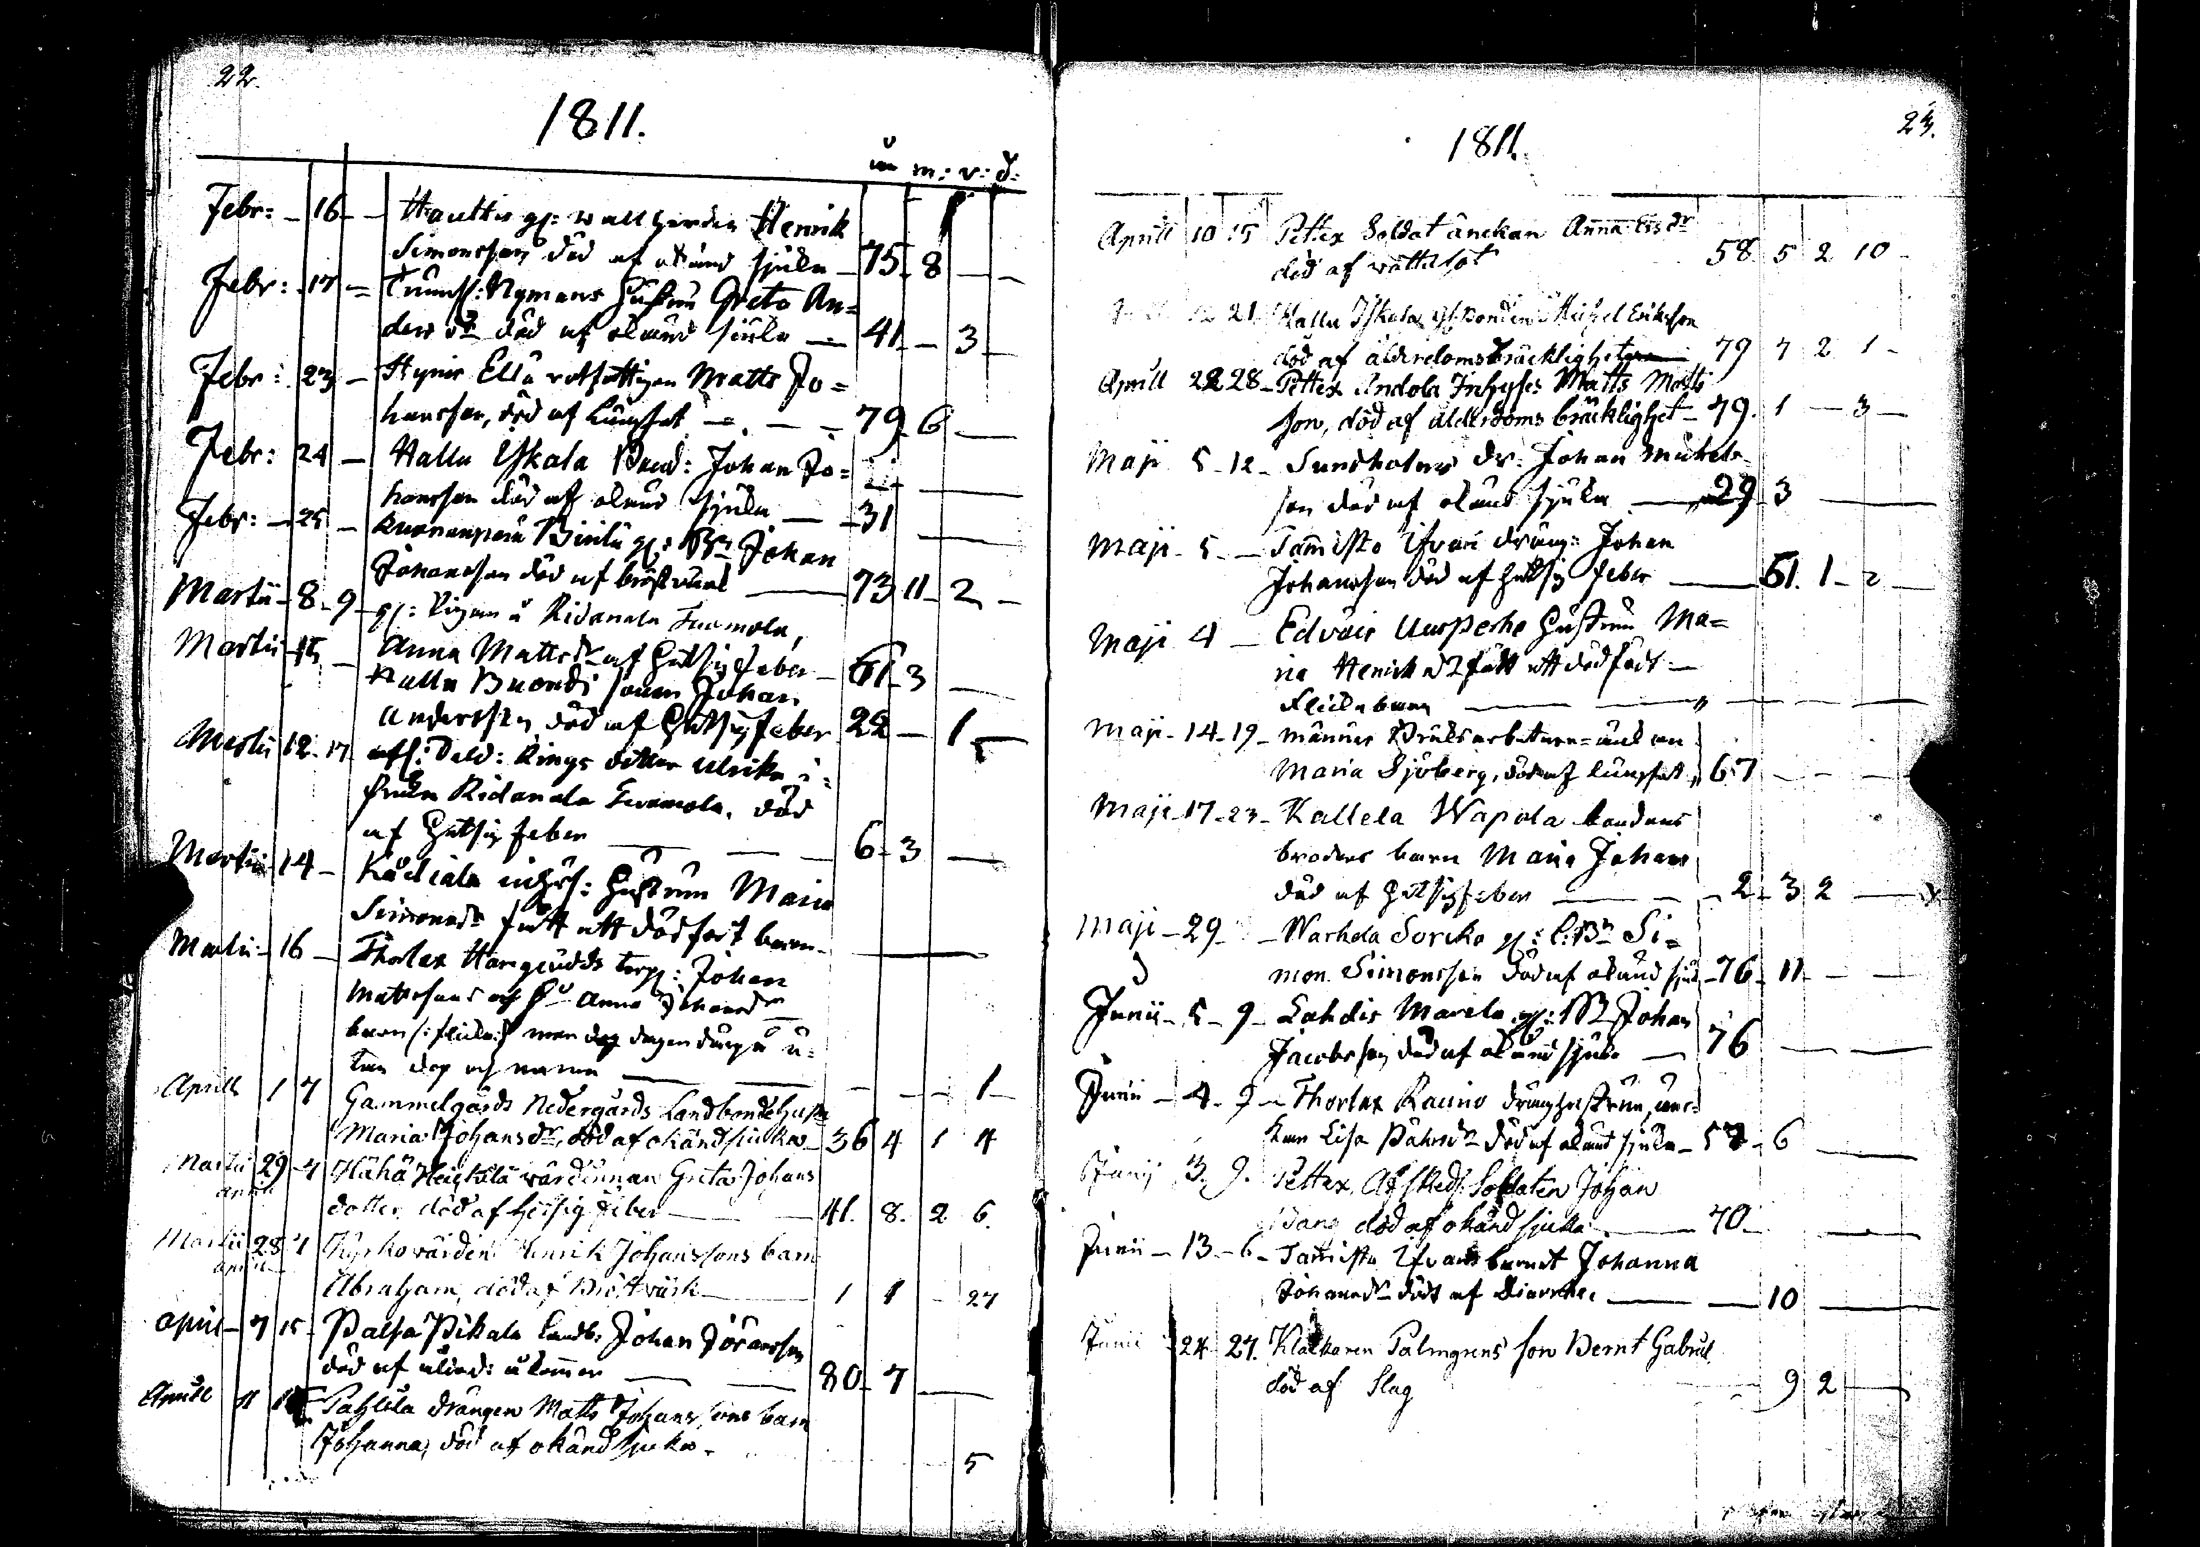 22.
1811.
m: v: d:
Febr: 16 Hauttis gl: wallherden Henrik
Simonsson död af okänd sjuka 75 8
Febr: 17 Nymans hustru Greta An=
ders dr död af okänd sjuka 41 3
Febr: 23 Hynis Ella rotfattigen Matts Jo=
hansson, död af lungsot 79 6
Febr: 24 Hallu Yskala Bond: Johan Jo=
hansson död af okänd sjuka 31
Febr: 25 Birilä gl: Bn Johan
Johansson död af bröstvärk 73 11 2
Martii 8 9 gl: Pigan å Ridanala Tuomola,
Anna Mattsdr af hetsig feber 61 3
Martii 15 Buondi sonen Johan
Andersson död af hetsig feber 22 1
Martii 12 17 afl: Sold: Rings dotter Ulrika i
Ridanala Tuomola, död
af hetsig feber 6 3
Martii 14 Kädiälä hustrun Maria
Simonsdr fått ett dödfört barn
Martii 16 Thorlax Hongqudds torp: Johan
Mattssons och Hu Anna Johansdr
barn (: flicka:) men dog dagen derpå u=
tan dop och namn 1
Aprill 1 7 Gammelgårds Nedergårds Landbonde hustr
Maria Johansdr, död af okänd sjuka 36 4 1 4
Martii 29 7 Hähä Heickilä värdinnan Greta Johans
Aprill
dotter död af hetsig feber 41. 8. 2 6.
Martii 28 7 Kyrkovärden Henrik Johanssons barn
Aprill
Abraham, död af Bröstvärk 1 1 27
April 7 15 Palsa Pikala Landb: Johan Jöransson
död af ålderd: åkommor 80 7
Aprill 11 Pahlula drängen Matts Johanssons barn
Johanna, död af okänd sjuka. 5
23.
1811.
Aprill 10 15 Pettex Soldat änckan Anna Ersdr
död af vattusot 58 5 2 10
21 Hallu Iskala gl: Bonden Michel Eriksson
död af ålderdomsbräcklighet 79 7 2 1
Aprill 22 28 Pettex Andola Inhyses Matts Matts
son, död af ålderdoms bräcklighet 79. 1 3
Maji 5 12 Sundholms dr: Johan Mickels
son död af okänd sjuka 29 3
Maji 5 Tamisto Ifvari dräng: Johan
Johansson död af hetsig feber 61. 1 2
Maji 4 Edväis Uusperhe hustrun Ma=
ria Henriksdr fått ett dödfödt
flickebarn
Maji 14 19 Männäis Bruksarbetare=änkan
Maria Sjöberg, död af lungsot 67
Maji 17 23 Kallela Wapola bondens
broders barn Maria Johans
död af hetsig feber 2 3 2
Maji 29 Warhela Sorcka gl: l: Bn Si=
mon Simonsson död af okänd sjuk 76 11
Junii 5 9 Lahdis Marela gl: Bn Johan
Jacobsson död af okänd sjuka 76
Junii 4 9 Thorlax Rauno dräng hustrun, än=
kan Lisa Påhlsdr död af okänd sjuka 57 6
Junij 3. 9. Pettex Afsked: Soldaten Johan
död af okänd sjuka 70
Junii 13 6 Tamisto Ifvars barnet Johanna
Johansdr död af Diarrhee 10
Junii 24 27. Klockaren Palmgrens son Bernt Gabriel
död af Slag 9 2